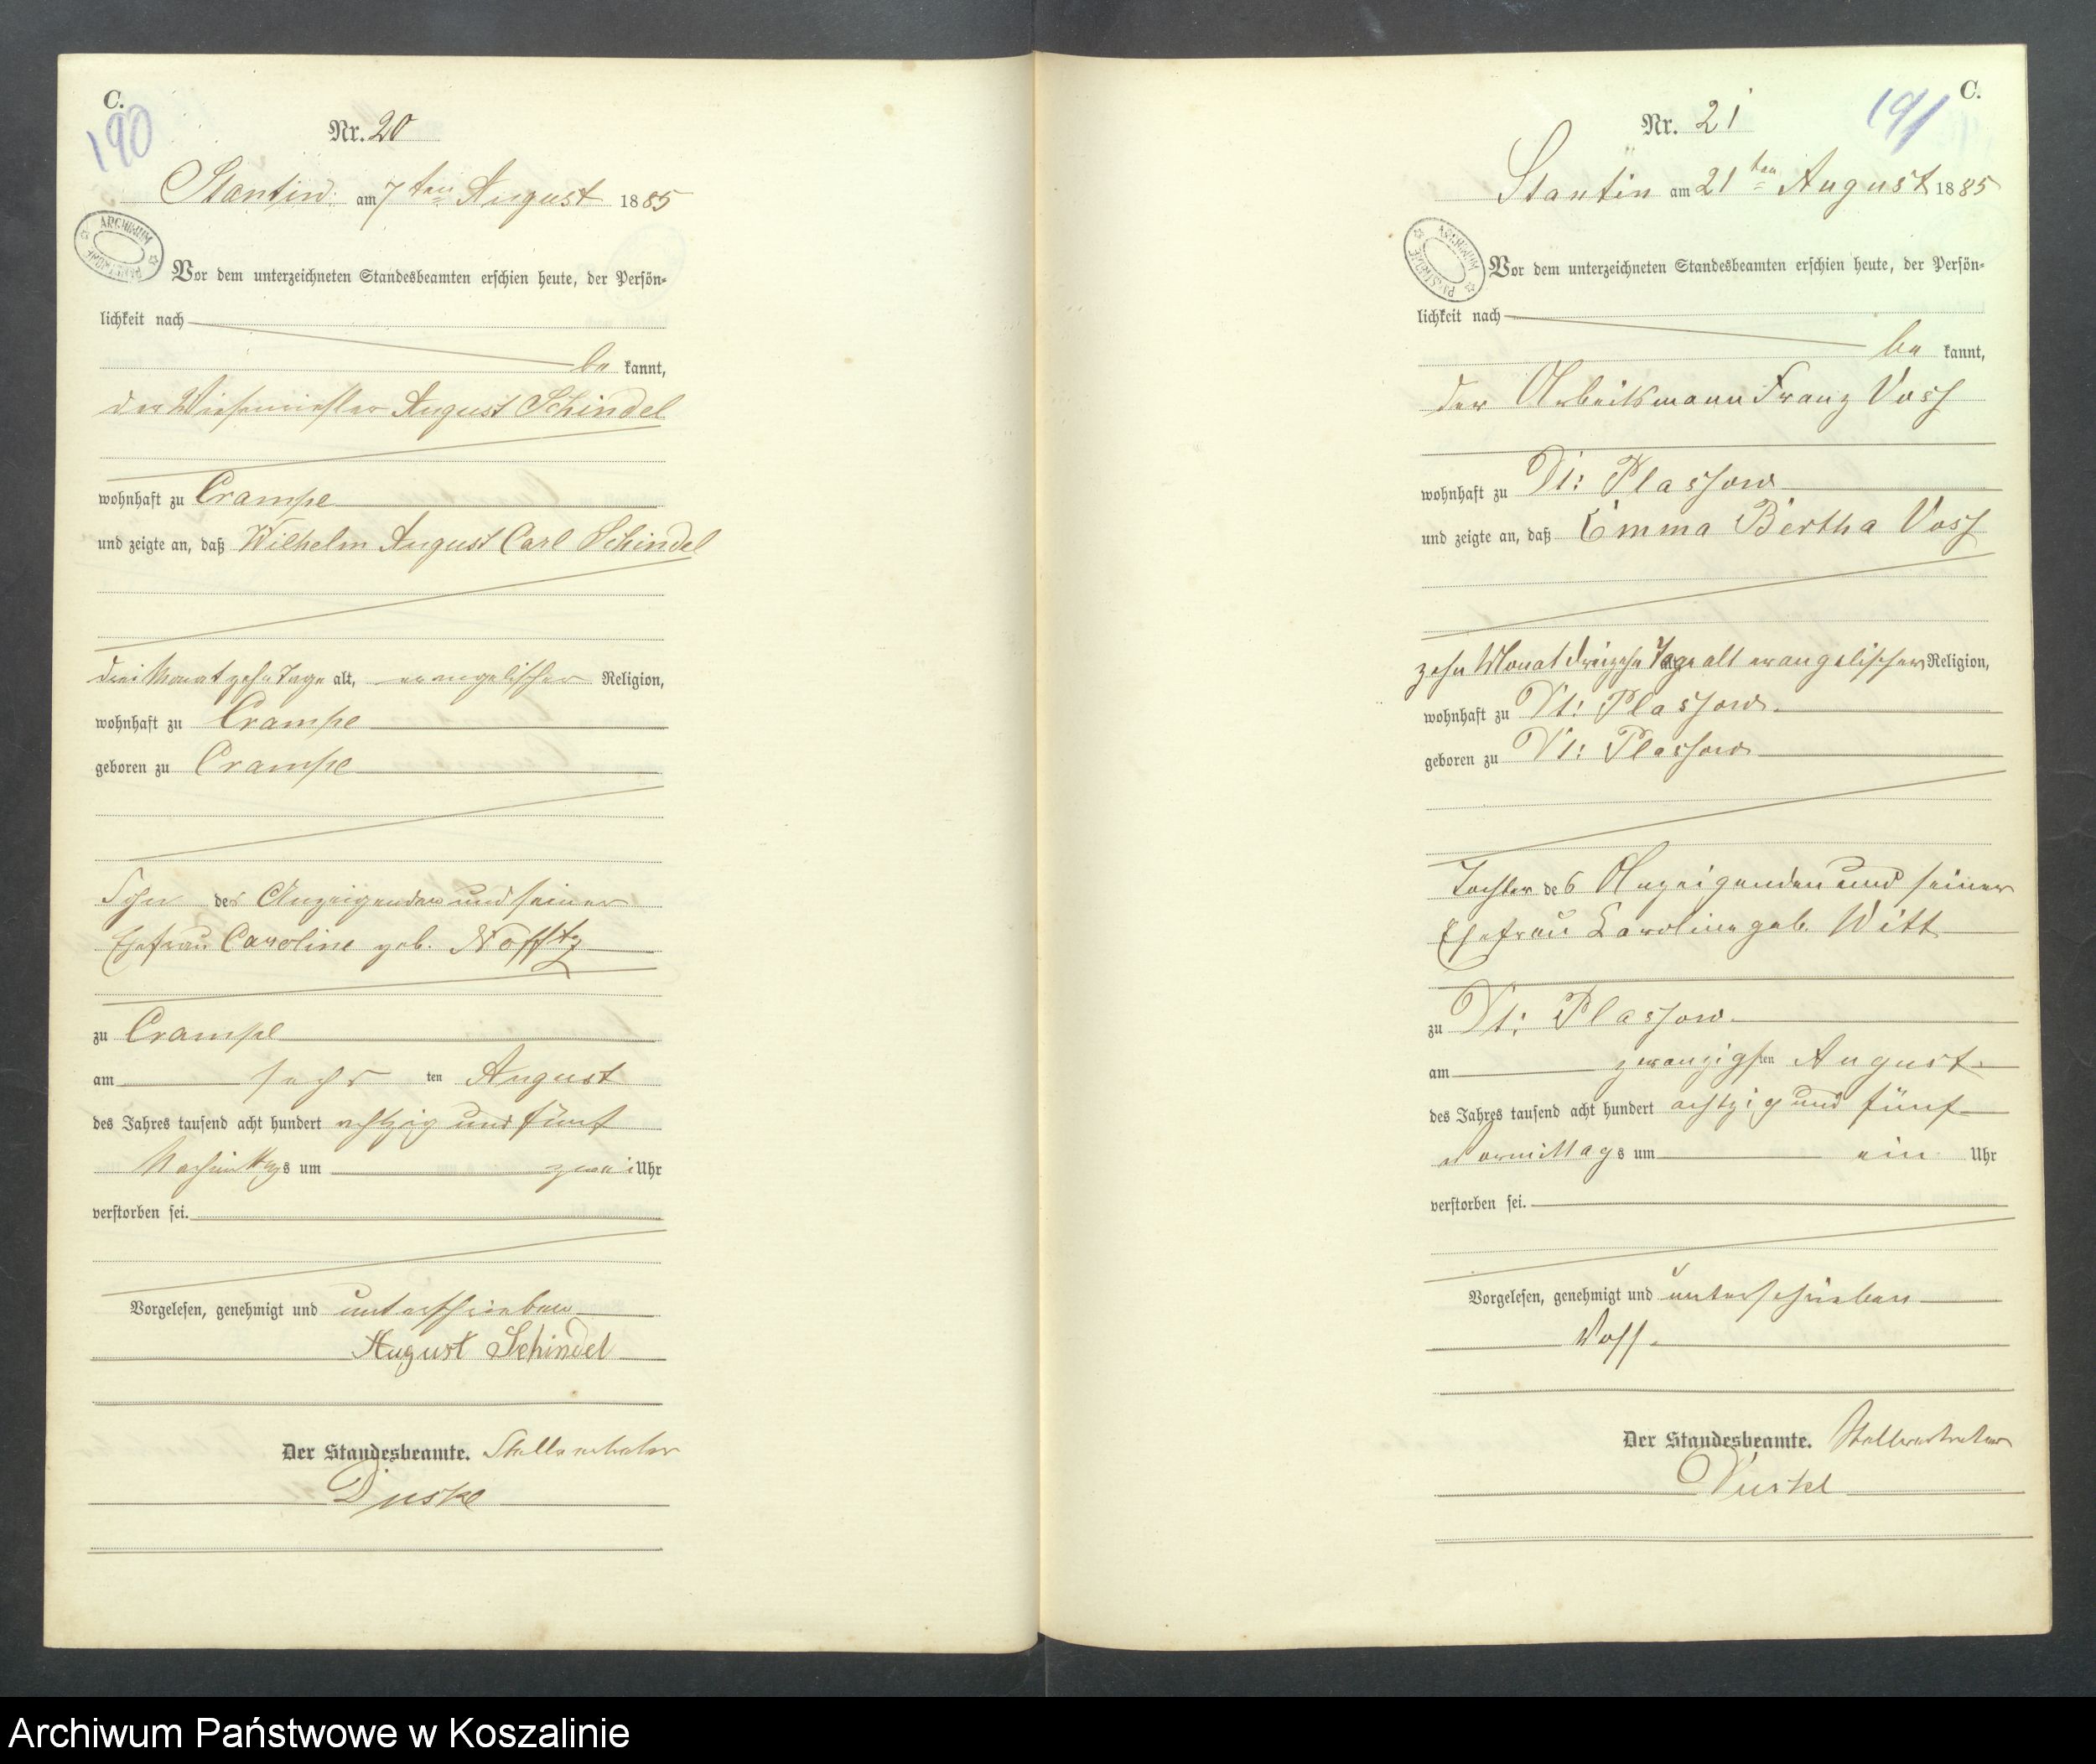 C.
190
Nr. 20
Stantin am 7ten August 1885
ARCHIWUM PAŃSTWOWE
Vor dem unterzeichneten Standesbeamten erschien heute, der Persön-
lichkeit nach
be kannt,
der Wiesenmeister August Schindel
wohnhaft zu Crampe
und zeigte an, daß Wilhelm August Carl Schindel
drei Monat zehn Tage alt, evangelischer Religion,
wohnhaft zu Crampe
geboren zu Crampe
Sohn des Anzeigenden und seiner
Ehefrau Caroline geb. Nofftz
zu Crampe
am sechs ten August
des Jahres tausend acht hundert achtzig und fünf
Nachmittags um zwei Uhr
verstorben sei.
Vorgelesen, genehmigt und unterschrieben
August Schindel
Der Standesbeamte. Stellvertreter
Duske
C.
191
Nr. 21
Stantin am 21ten August 1885
ARCHIWUM PAŃSTWOWE
Vor dem unterzeichneten Standesbeamten erschien heute, der Persön-
lichkeit nach
be kannt,
der Arbeitsmann Franz Voss
wohnhaft zu Dt: Plassow
und zeigte an, daß Emma Bertha Voss
zehn Monat dreizehn Tage alt evangelischer Religion,
wohnhaft zu Dt: Plassow
geboren zu Dt: Plassow
Tochter des Anzeigenden und seiner
Ehefrau Karoline geb. Witt
zu Dt: Plassow
am zwanzigsten August
des Jahres tausend acht hundert achtzig und fünf
Vormittags um ein Uhr
verstorben sei.
Vorgelesen, genehmigt und unterschrieben
Voss
Der Standesbeamte. Stellvertreter
Duske
Archiwum Państwowe w Koszalinie